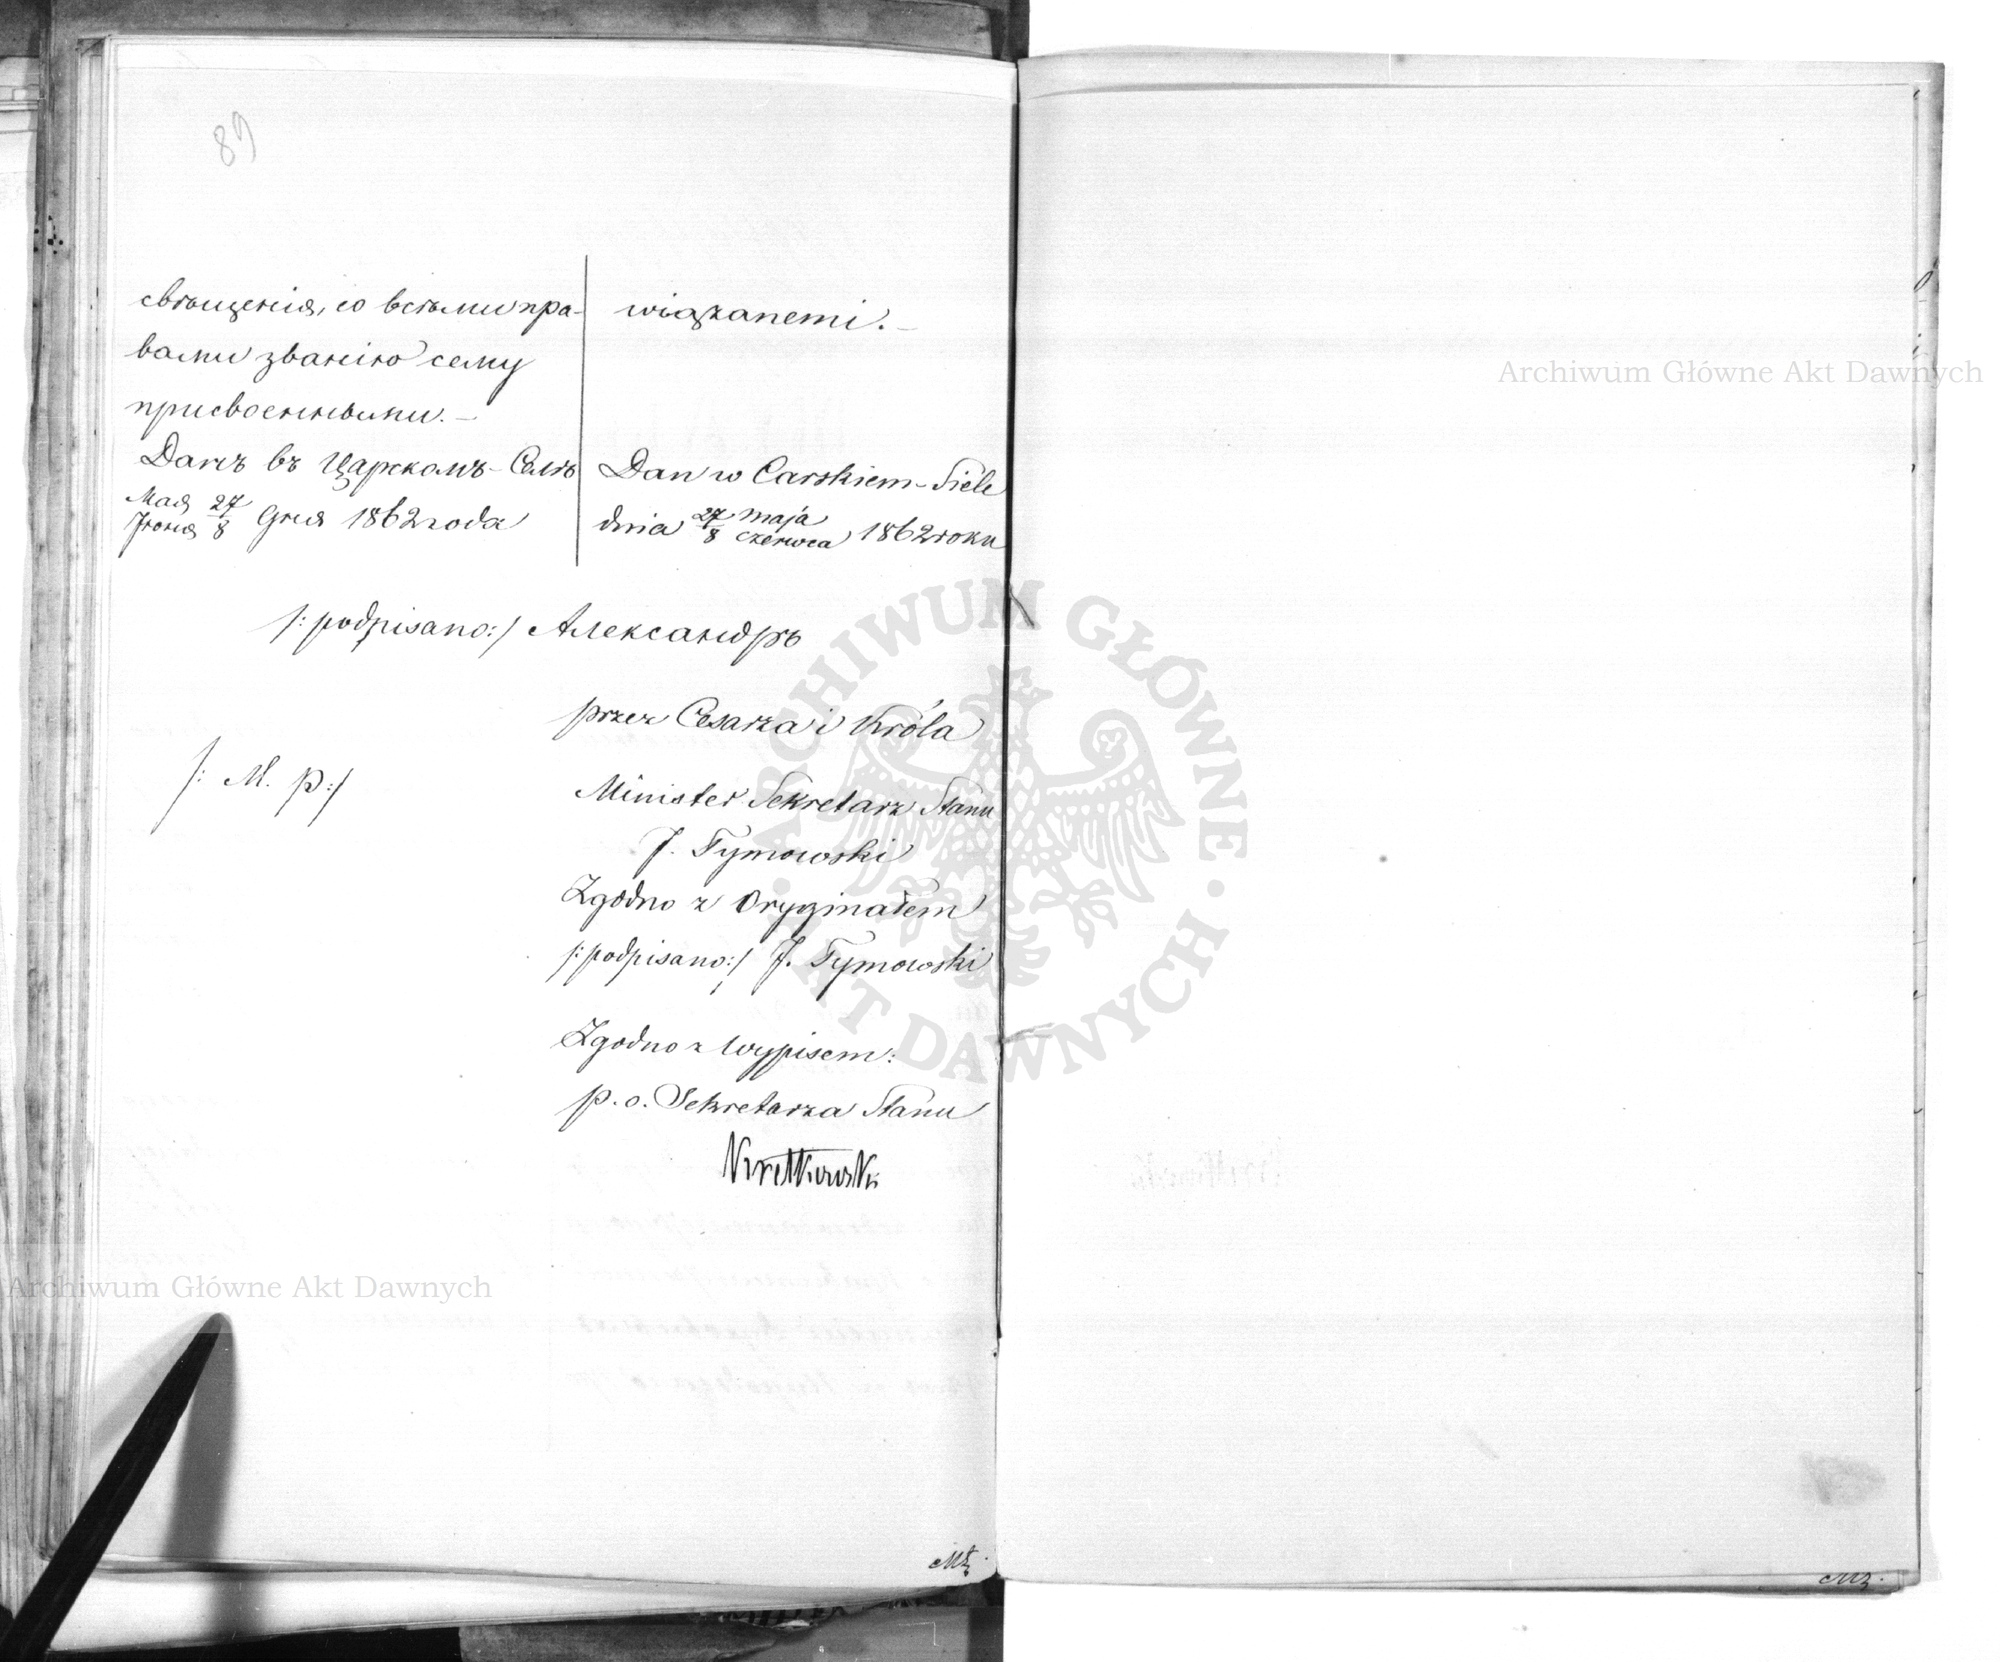 89
свѣщенія, со всѣми пра-
вами званію сему
присвоенными.—
Данъ въ Царскомъ-Селѣ
Мая 27
Іюня 8 дня 1862 года
wiązanemi.—
Dan w Carskiem-Siele
dnia 27 maja
8 czerwca 1862 roku
/: podpisano:/ Александръ
przez Cesarza i Króla
/: M. p:/
Minister Sekretarz Stanu
J. Tymowski
Zgodno z Oryginałem
/: podpisano:/ J. Tymowski
Zgodno z Wypisem:
p. o. Sekretarza Stanu
Kretkowski
Archiwum Główne Akt Dawnych
Archiwum Główne Akt Dawnych
ARCHIWUM GŁÓWNE AKT DAWNYCH